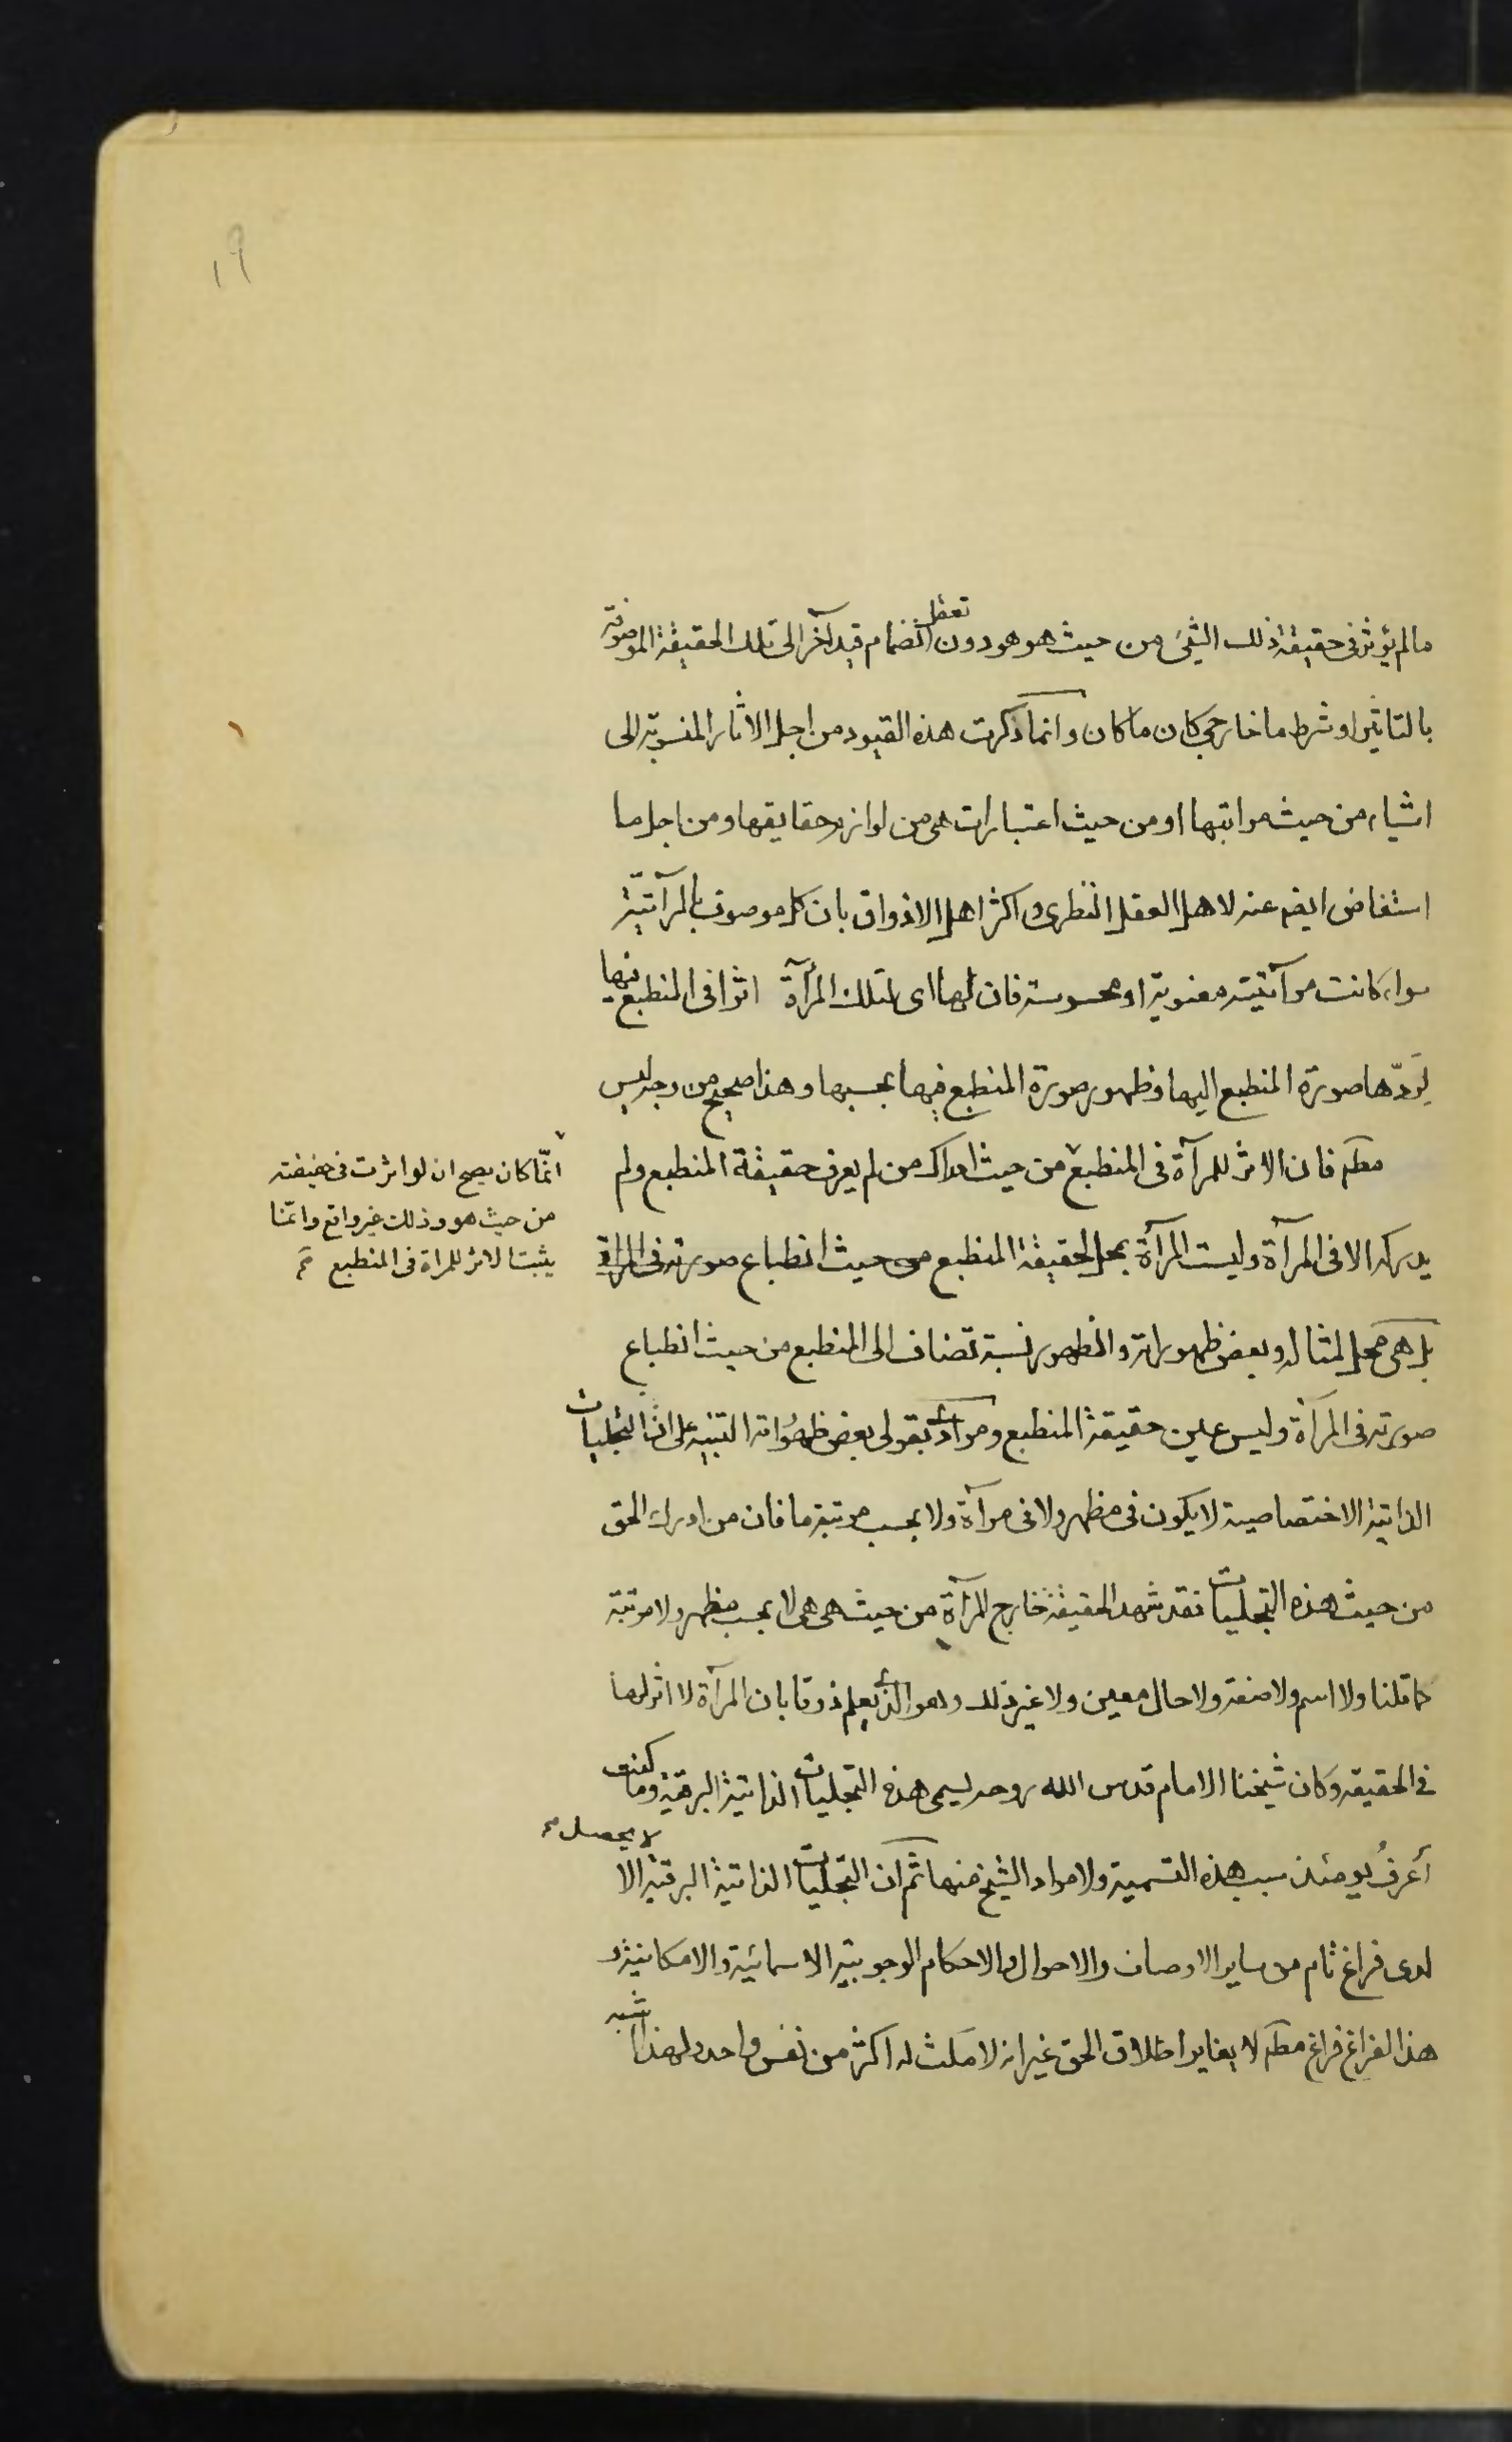 ١٩
مالم يؤثر فى حقيقة ذلك الشئ من حيث هو هو دون تعقل انضمام قيد آخر الى تلك الحقيقة الموصوفة
بالتاثير او شرط ما خارجى كان ما كان وانما ذكرت هذه القيود من اجل الاثار المنسوبة الى
اشياء من حيث مراتبها او من حيث اعتبارات هى من لوازم حقايقها ومن اجل ما
استفاض ايضم عند اهل العقل النظرى واكثر اهل الاذواق بان كل موصوف بالمرآتيّة
سواء كانت مرآتيته معنوية او محسوسة فان لها اى لتلك المرآة اثرا فى المنطبع فيها
لردّها صورة المنطبع اليها وظهور صورة المنطبع فيها بحسبها وهذا صحيح من وجه ليس
مطم فان الاثر للمرآة فى المنطبع من حيث ادراك من لم يعرف حقيقة المنطبع ولم
انّما كان يصح ان لو اثرت فى حقيقته
من حيث هو وذلك غير واقع وانّما
يثبت الاثر للمراة فى المنطبع
يدركه الا فى المرآة وليست المرآة بمحل لحقيقة المنطبع من حيث انطباع صورته فى المراة
بل هى محل لمثاله وبعض ظهوراته والظهور نسبة تضاف الى المنطبع من حيث انطباع
صورته فى المرآة وليس عين حقيقة المنطبع ومرادى بقولى بعض ظهوراته التنبيه على ان التجليات
الذاتية الاختصاصية لا يكون فى مظهر ولا فى مرآة ولا بحسب مرتبة ما فان من ادرك الحق
من حيث هذه التجليات فقد شهد الحقيقة خارج المرآة من حيث هى هى لا بحسب مظهر ولا مرتبة
كما قلنا ولا اسم ولا صفة ولا حال معين ولا غير ذلك وهو الذى يعلم ذوقا بان المرآة لا اثر لها
فى الحقيقة وكان شيخنا الامام قدس الله روحه يسمى هذه التجليات الذاتية البرقية وما كنت
أعرفُ يومئذ سبب هذه التسمية ولا مراد الشيخ منها ثم ان التجليات الذاتية البرقية لا يحصل الا
لدى فراغ تام من ساير الاوصاف والاحوال والاحكام الوجوبية الاسمائية والامكانية و
هذا الفراغ فراغ مطم لا يغاير اطلاق الحق غير انه لا مكث له اكثر من نفس واحد ولهذا شبه